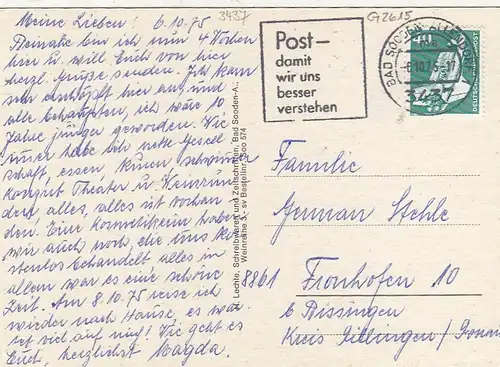 Meine Lieben! 6.10.75
Beinahe bin ich nun 4 Wochen
hier u. will Euch von hier
herzl. Grüße senden. Ich kam
sehr erschöpft hier an, und
alle behaupten, ich wäre 10
Jahre jünger geworden. Wie
immer habe ich nette Gesell
schaft, essen, kuren schwimmen
Konzert Theater u.
dern alles, alles ist vorhan
den. Eine Kosmetikerin habe
wir auch noch, die uns ko
stenlos behandelt alles in
allem war es eine schöne
Zeit. Am 8.10.75 reise ich
wieder nach Hause, es war
tet viel auf mich! Wie geht es
Euch, herzlichst Magda.
3437
G2615
Post–
damit
wir uns
besser
verstehen
BAD SOODEN-ALLENDORF
-6.10.75-17
3437
40
DEUTSCHE BUNDESPOST
Lechte, Schreibwaren und Zeitschriften, Bad Sooden-A.,
Weinreihe 3, - sv Bestellnr. Soo 574
Familie
German Stehle
8861 Fronhofen 10
b Bissingen
Kreis Dillingen/Donau